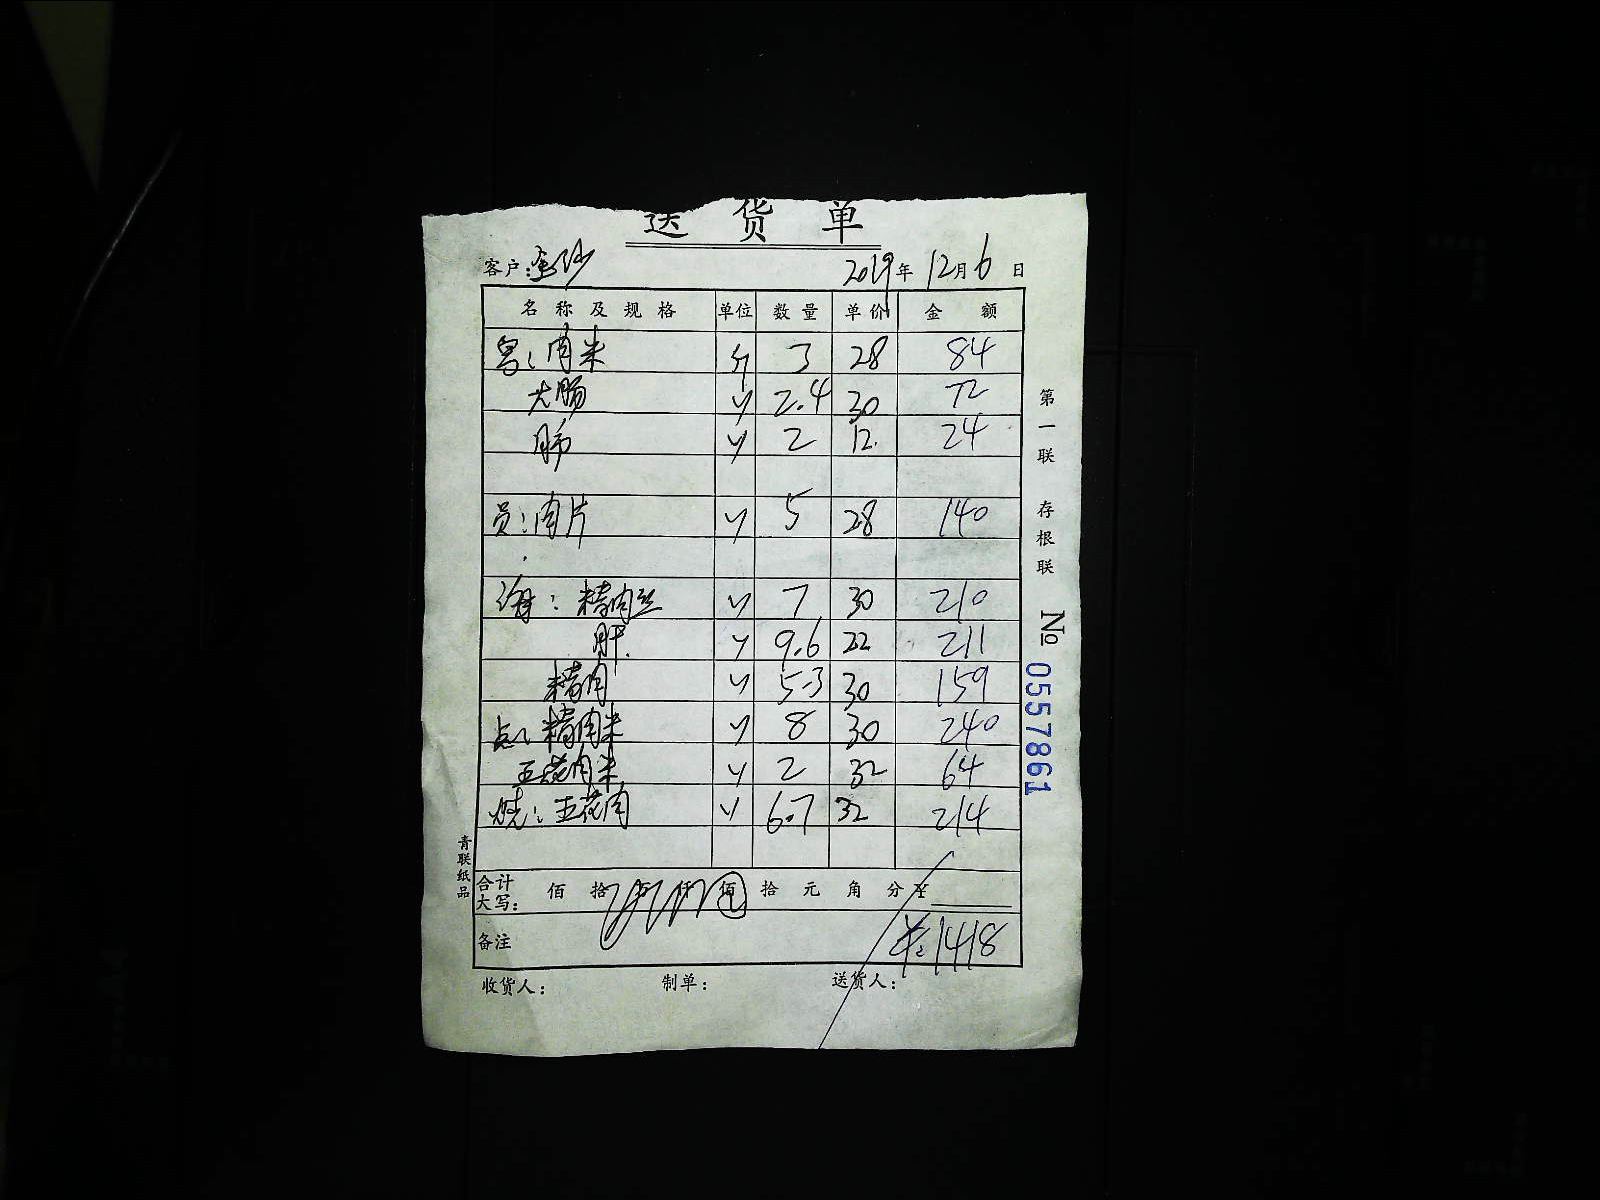 送 货 单
客户: 金沙 2019年12月6日
名称及规格 单位 数量 单价 金额
肉米 斤 3 28 84
大肠 〃 2.4 30 72
肺 〃 2 12 24
员:肉片 〃 5 28 140
海:精肉丝 〃 7 30 210
肝 〃 9.6 22 211
精肉 〃 5.3 30 159
点:精肉米 〃 8 30 240
五花肉米 〃 2 32 64
烧:五花肉 〃 6.7 32 214
合计大写: 佰 拾 仟 佰 拾 元 角 分 ¥
备注 ¥:1418
收货人: 制单: 送货人:
第一联 存根联 № 0557861
青联纸品